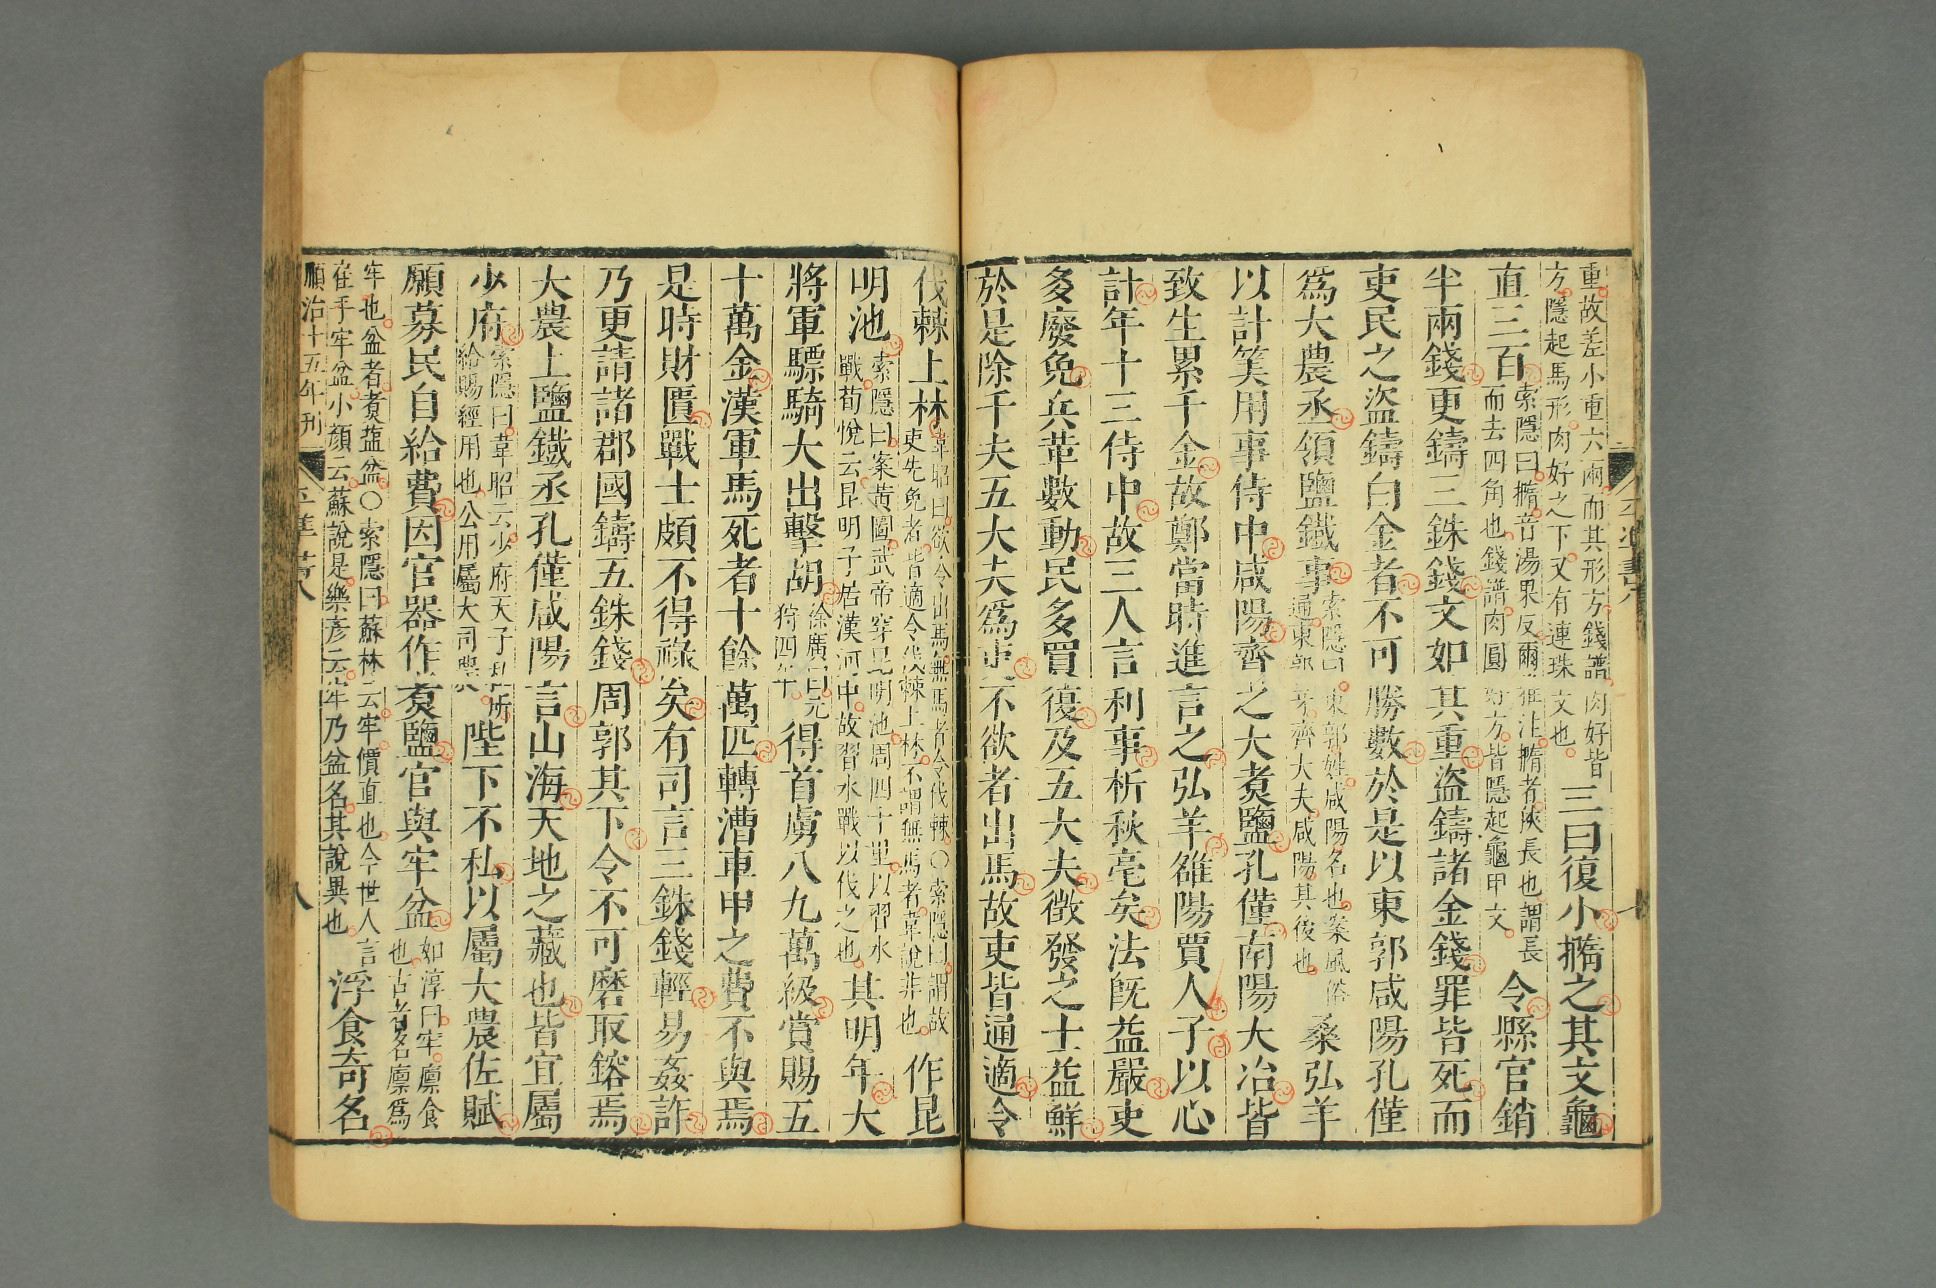 重故差小重六兩而其形方錢譜肉好皆
方隱起馬形肉好之下又有連珠文也
三曰復小撱之其文龜
直三百
索隱曰撱音湯果反爾雅注撱者狹長也謂長
而去四角也錢譜肉圓好方皆隱起龜甲文
令縣官銷
半兩錢更鑄三銖錢文如其重盜鑄諸金錢罪皆死而
吏民之盜鑄白金者不可勝數於是以東郭咸陽孔僅
爲大農丞領鹽鐵事
索隱曰東郭姓咸陽名也案風俗
通東郭牙齊大夫咸陽其後也
桑弘羊
以計筭用事侍中咸陽齊之大煑鹽孔僅南陽大冶皆
致生累千金故鄭當時進言之弘羊雒陽賈人子以心
計年十三侍中故三人言利事析秋毫矣法旣益嚴吏
多廢免兵革數動民多買復及五大夫徵發之士益鮮
於是除千夫五大夫爲吏不欲者出馬故吏皆通適令
伐棘上林
韋昭曰欲令出馬無馬者令伐棘○索隱曰謂故
吏先免者皆適令伐棘上林不謂無馬者韋說非也
作昆
明池
索隱曰案黃圖武帝穿昆明池周四十里以習水
戰荀悅云昆明子居漢河中故習水戰以伐之也
其明年大
將軍驃騎大出擊胡
徐廣曰元
狩四年
得首虜八九萬級賞賜五
十萬金漢軍馬死者十餘萬匹轉漕車甲之費不與焉
是時財匱戰士頗不得祿矣有司言三銖錢輕易姦詐
乃更請諸郡國鑄五銖錢周郭其下令不可磨取鎔焉
大農上鹽鐵丞孔僅咸陽言山海天地之藏也皆宜屬
少府
索隱曰韋昭云少府天子私所
給賜經用也公用屬大司農
陛下不私以屬大農佐賦
願募民自給費因官器作煑鹽官與牢盆
如淳曰牢廩食
也古者名廩爲
牢也盆者煑鹽盆○索隱曰蘇林云牢價直也今世人言
雇手牢盆小顏云蘇說是樂彥云牢乃盆名其說異也
浮食奇名
順治十五年刊
平準書八
八